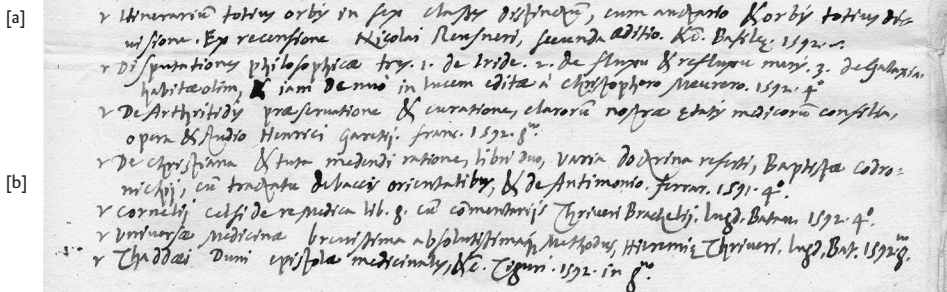 [a]
v Itinerariũ totius orbis in sex classes distinctũ, cum auctario & orbis totius di-
uisione. Ex recensione Nicolai Reusneri, secunda æditio. 8°. Basileę. 1592.
v Disputationes philosophicæ tres. 1. de Iride. 2. de fluxu & refluxu maris. 3. de Galaxia.
habitæ olim, & iam denuo in lucem editæ à christophoro Meurero. 1592. 4°
v De Arthritidis præseruatione & curatione, clarorũ nostræ ętatis medicorũ consilia,
opera & studio Henrici Garetij. franc. 1592. 8°.
v De christiana & tuta medendi ratione, libri duo, varia doctrina referti, Baptistæ codro-
[b]
nichij, cũ tractatu de baccis orientalibus, & de Antimonio. ferrar. 1591. 4°.
v Cornelij celsi de re Medica lib. 8. cũ cõmentarijs Thriueri Brachelij. lugd. Batau. 1592. 4°.
v Vniuersæ Medicinæ breuissima absolutissimaq; Methodus, Hieremię Thriueri. lugd. Bat. 1592. 8.
v Thaddæi Duni epistolæ medicinales, &c. Tiguri. 1592. in 8°.